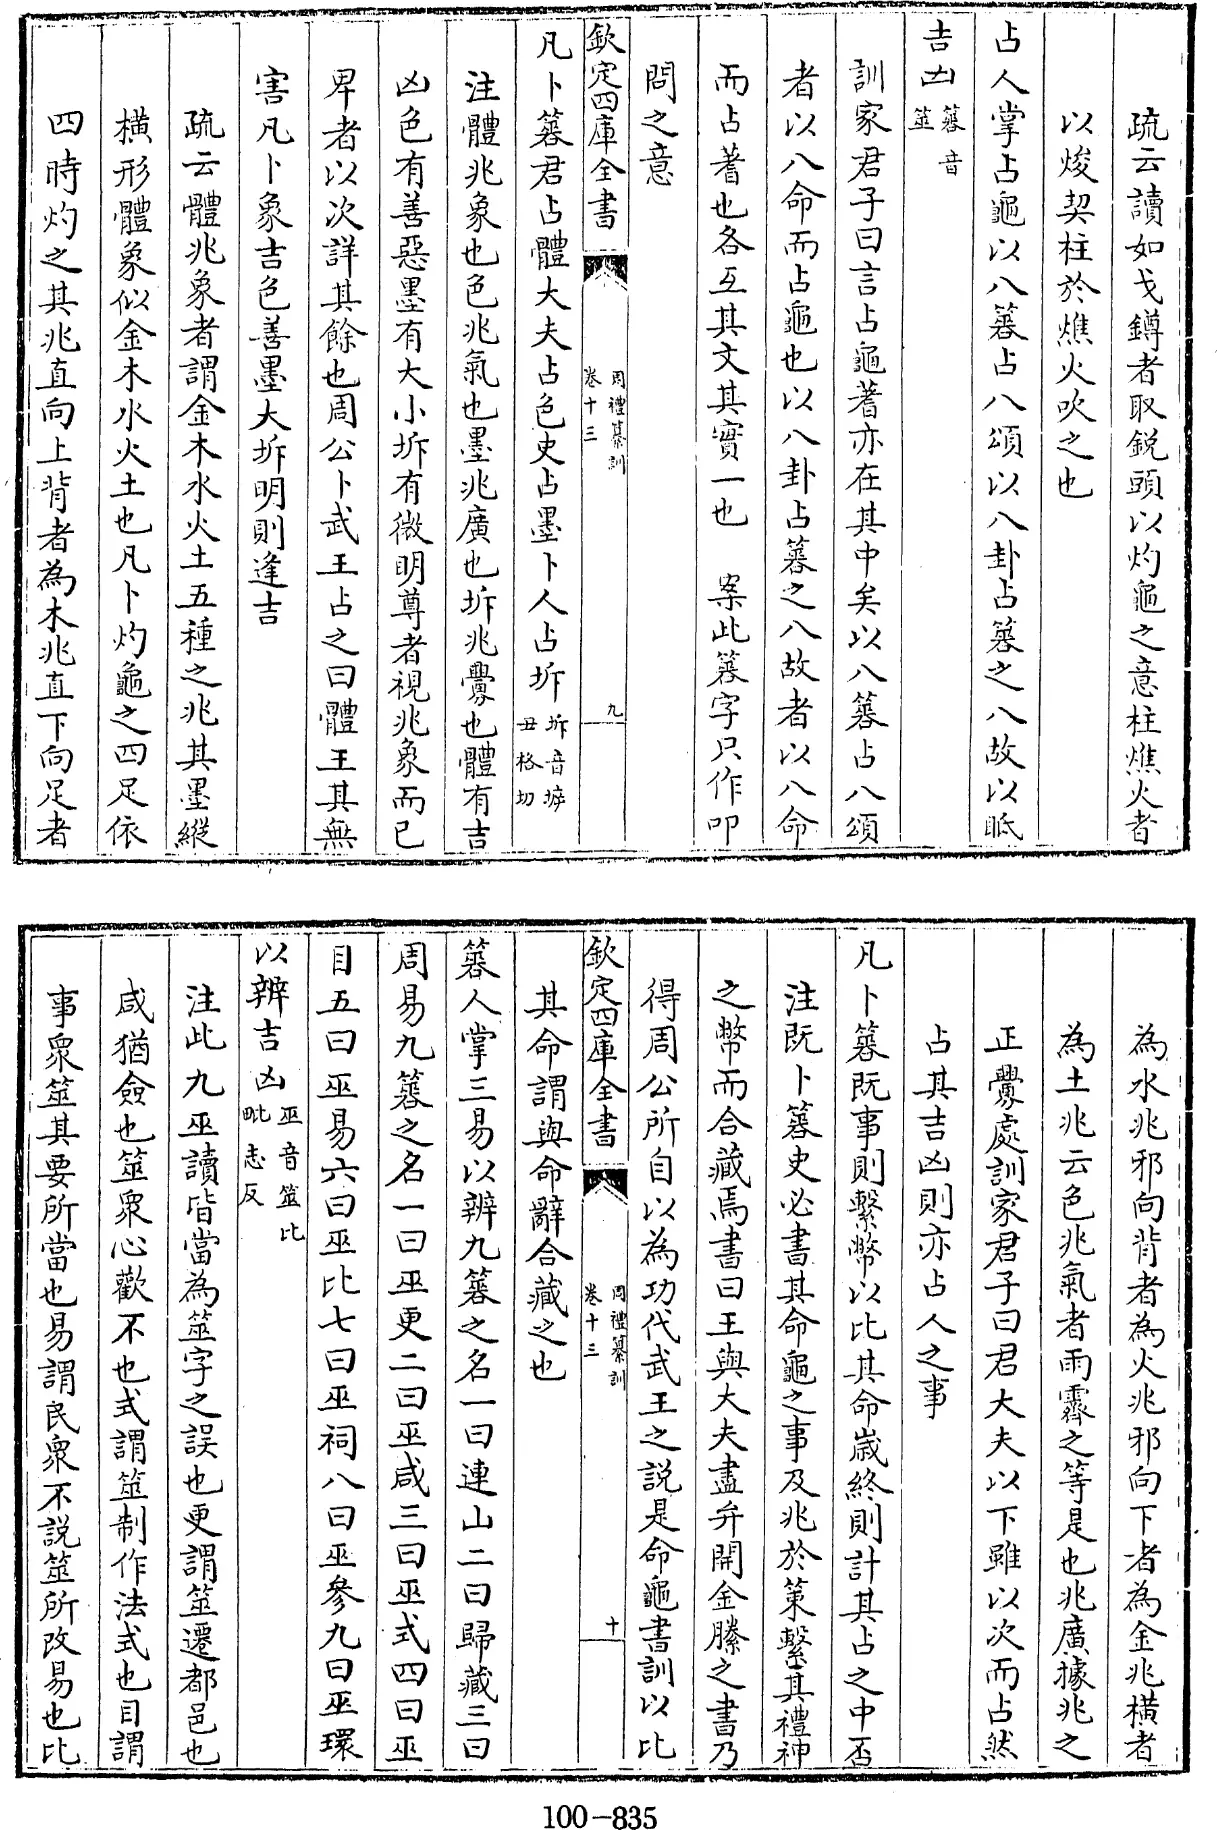 疏云讀如戈鐏者取鋭頭以灼龜之意柱燋火者
以焌契柱於燋火吹之也
占人掌占龜以八簭占八頌以八卦占簭之八故以眡
吉凶簭音筮
訓家君子曰言占龜蓍亦在其中矣以八簭占八頌
者以八命而占龜也以八卦占簭之八故者以八命
而占蓍也各互其文其實一也　案此簭字只作叩
問之意
欽定四庫全書
周禮纂訓
卷十三
九
凡卜簭君占體大夫占色史占墨卜人占坼坼音㙤丑格切
注體兆象也色兆氣也墨兆廣也坼兆釁也體有吉
凶色有善惡墨有大小坼有微明尊者視兆象而已
卑者以次詳其餘也周公卜武王占之曰體王其無
害凡卜象吉色善墨大坼明則逢吉
疏云體兆象者謂金木水火土五種之兆其墨縱
橫形體象似金木水火土也凡卜灼龜之四足依
四時灼之其兆直向上背者為木兆直下向足者
為水兆邪向背者為火兆邪向下者為金兆橫者
為土兆云色兆氣者雨霽之等是也兆廣據兆之
正釁處訓家君子曰君大夫以下雖以次而占然
占其吉凶則亦占人之事
凡卜簭既事則繫幣以比其命歲終則計其占之中否
注既卜簭史必書其命龜之事及兆於策繫其禮神
之幣而合藏焉書曰王與大夫盡弁開金縢之書乃
得周公所自以為功代武王之説是命龜書訓以比
欽定四庫全書
周禮纂訓
卷十三
十
其命謂與命辭合藏之也
簭人掌三易以辨九簭之名一曰連山二曰歸藏三曰
周易九簭之名一曰巫更二曰巫咸三曰巫式四曰巫
目五曰巫易六曰巫比七曰巫祠八曰巫參九曰巫環
以辨吉凶巫音筮比毗志反
注此九巫讀皆當為筮字之誤也更謂筮遷都邑也
咸猶僉也筮衆心歡不也式謂筮制作法式也目謂
事衆筮其要所當也易謂民衆不説筮所改易也比
100-835